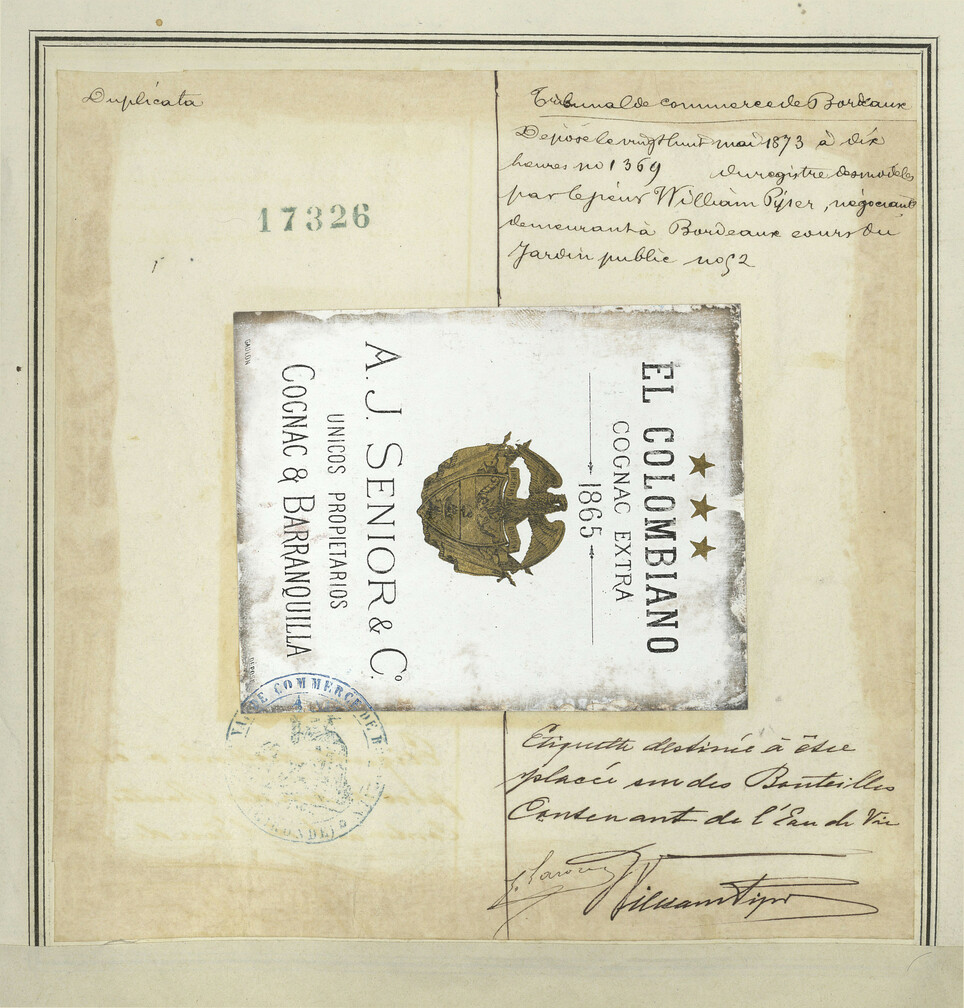 Duplicata
17326
Tribunal de commerce de Bordeaux
Déposé le vingt huit mai 1873 à dix
heures no 1369 du registre des modèles
par le sieur William Pifser, négociant
demeurant à Bordeaux cours du
Jardin public no 52
EL COLOMBIANO
COGNAC EXTRA
1865
A. J. SENIOR & Cº.
UNICOS PROPIETARIOS
COGNAC & BARRANQUILLA
GAULON
COMMERCE DE B
GIRONDE
Etiquette destinée à être
placée sur des Bouteilles
Contenant de l'Eau de Vie
William